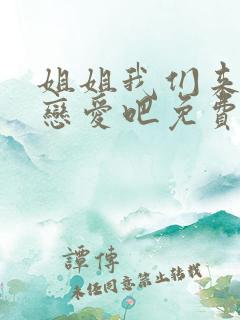 姐姐我们来
戀愛吧免費
譚傳
未任同意禁止轉載